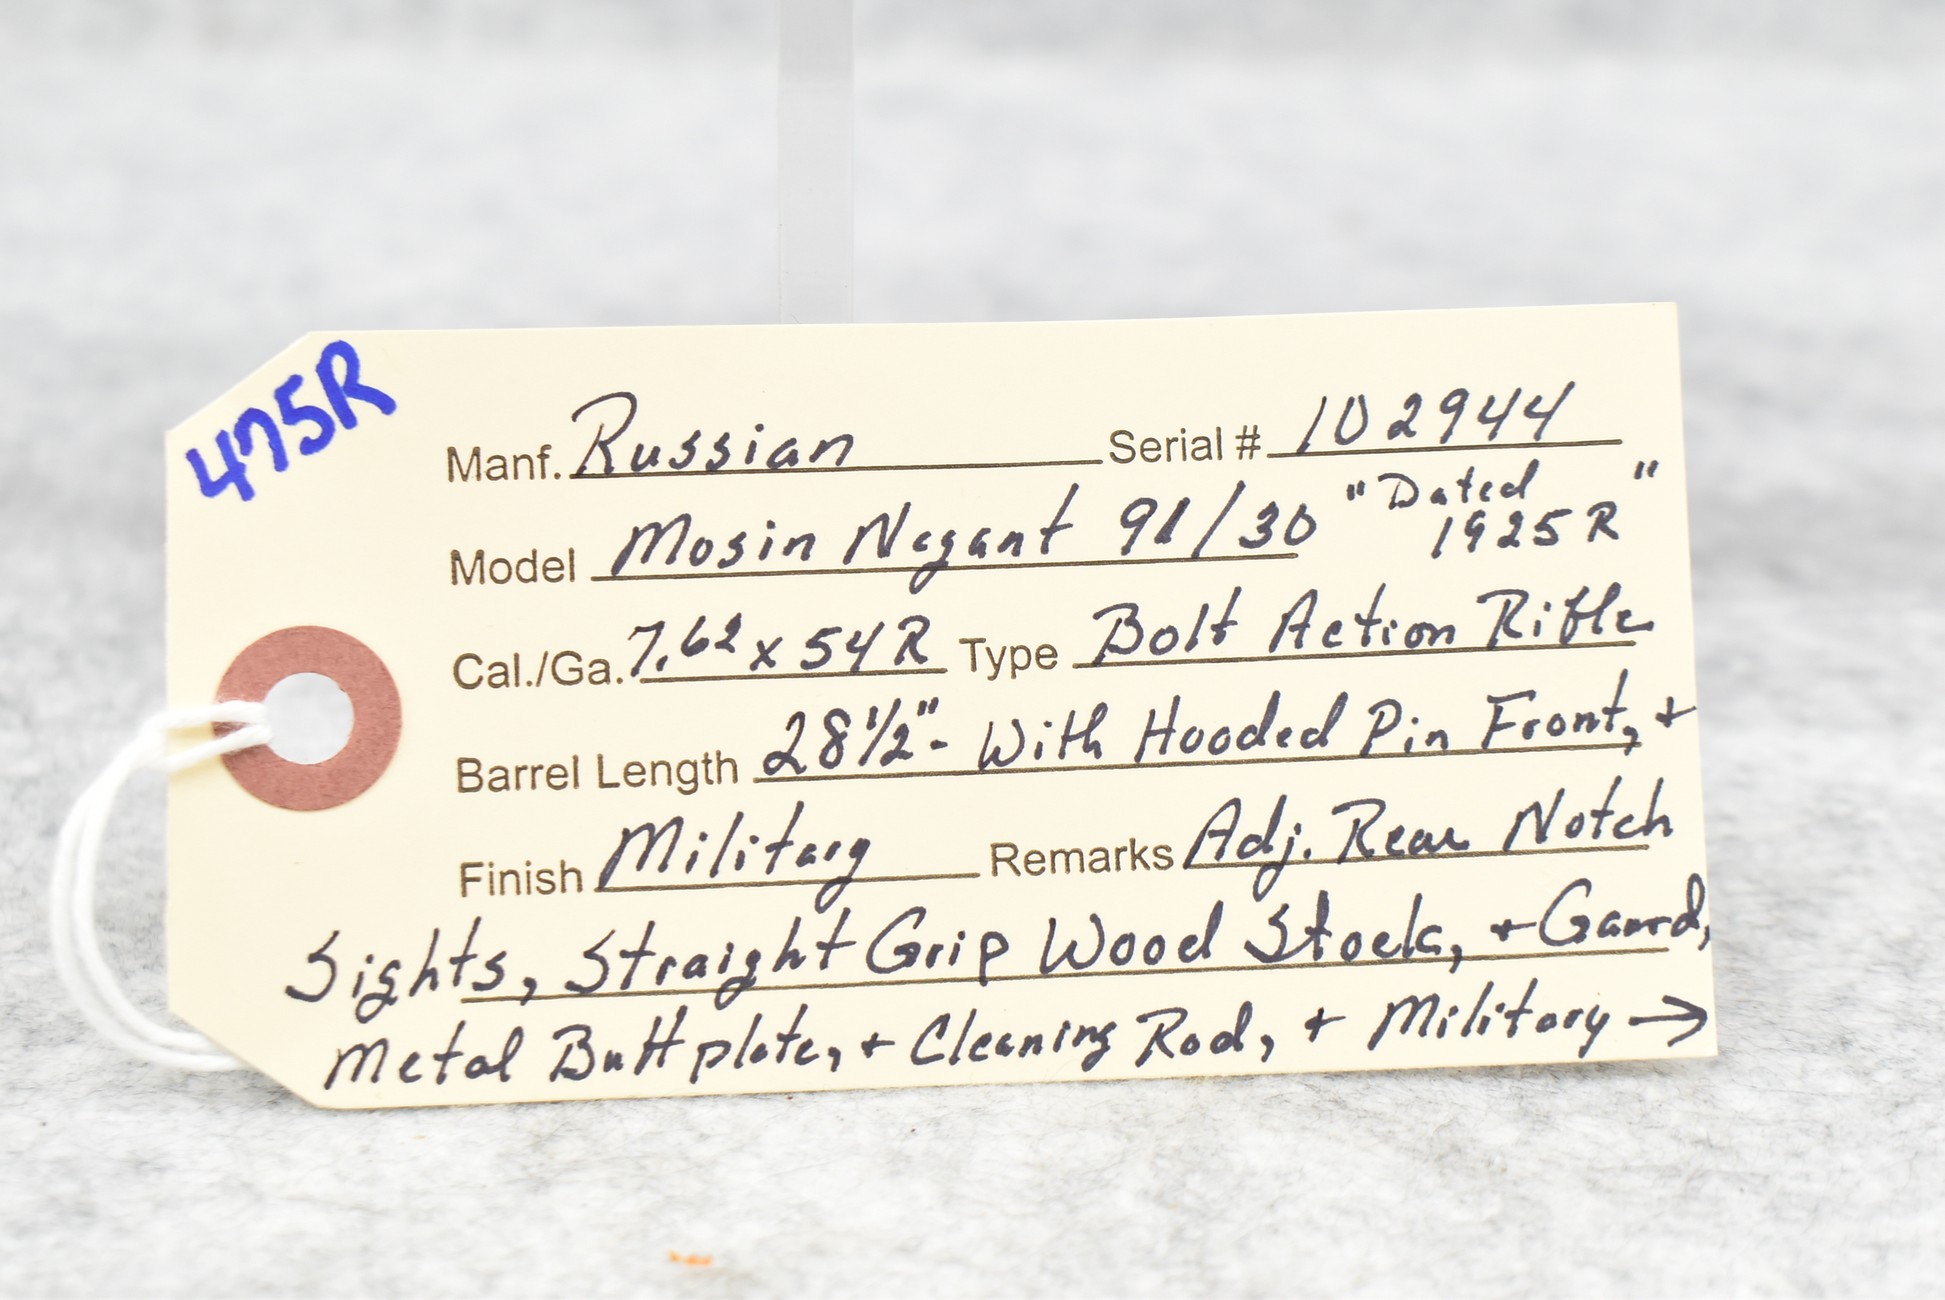 475R
Manf. Russian Serial # 102944
Model Mosin Negant 91/30 "Dated 1925R"
Cal./Ga. 7.62 x 54R Type Bolt Action Rifle
Barrel Length 28½"- With Hooded Pin Front, +
Finish Military Remarks Adj. Rear Notch
Sights, Straight Grip Wood Stock, + Gaurd,
Metal Buttplate, + Cleaning Rod, + Military →